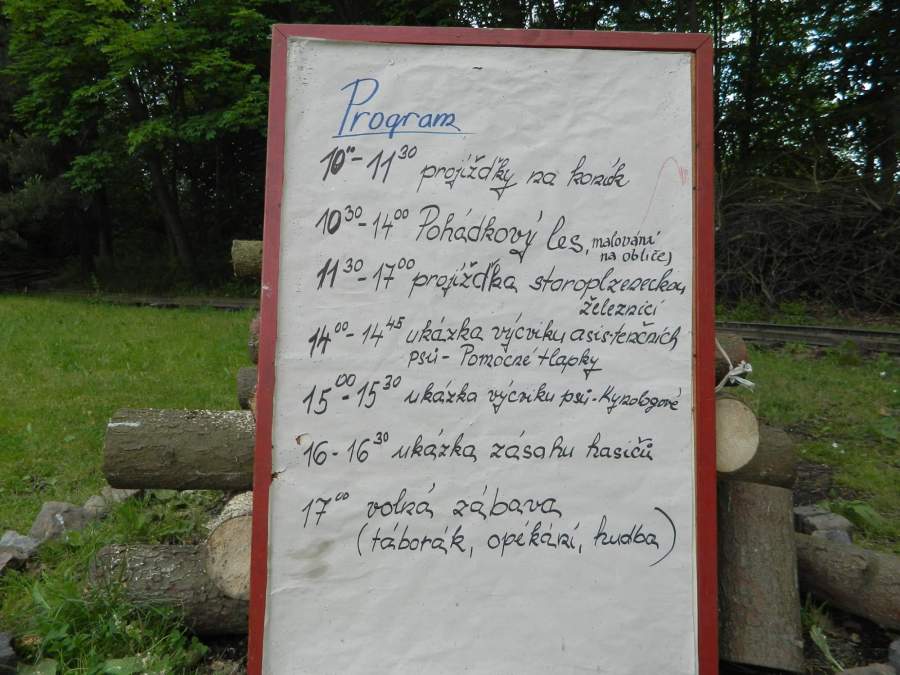 Program
10⁰⁰-11³⁰ projížďky na koník
10³⁰-14⁰⁰ Pohádkový les, malování
na obličej
11³⁰-17⁰⁰ projížďka staroplzeneckou
železnicí
14⁰⁰-14⁴⁵ ukázka výcviku asistenčních
psů - Pomocné tlapky
15⁰⁰-15³⁰ ukázka výcviku psů-Kynologové
16-16³⁰ ukázka zásahu hasičů
17⁰⁰ volná zábava
(táborák, opékání, hudba)